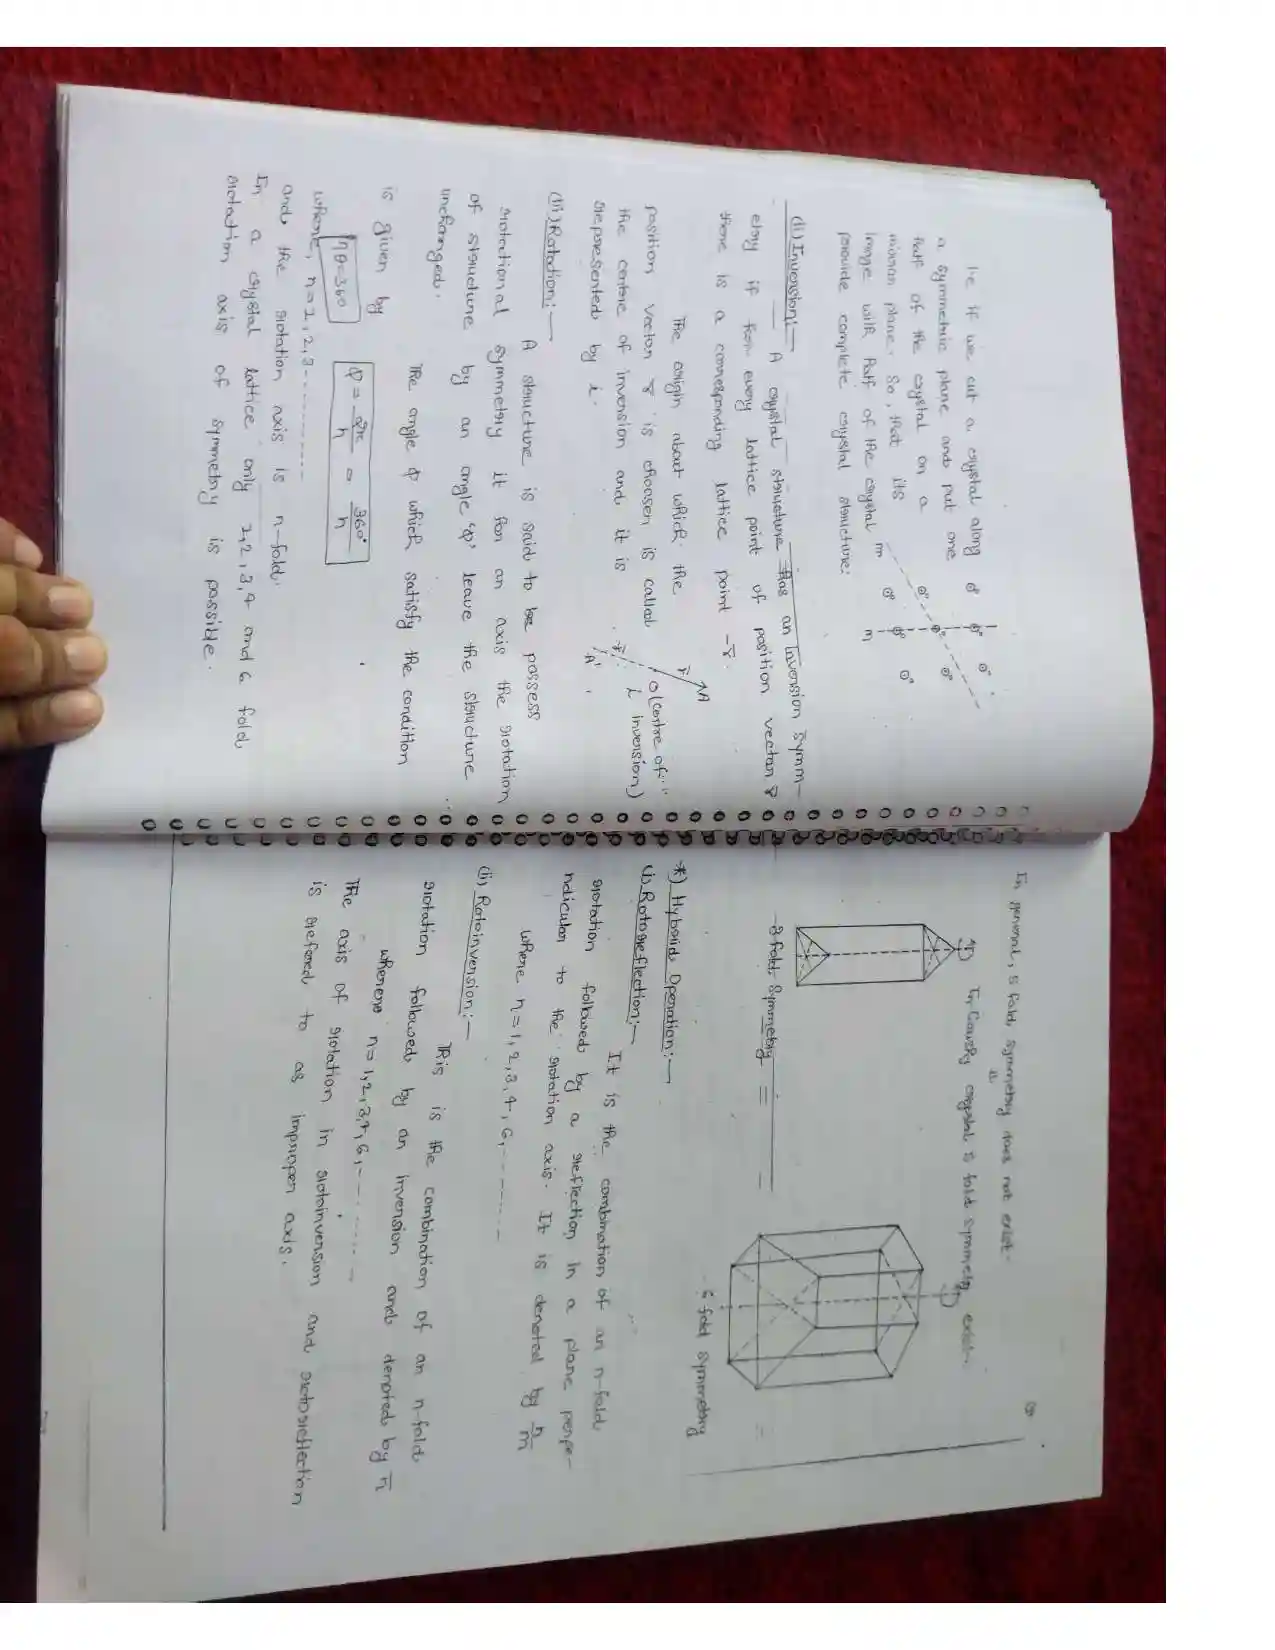 i.e if we cut a crystal along
a symmetric plane and put one
half of the crystal on a
mirror plane. So, that its
image with half of the crystal
provide complete crystal structure.
m
m
(ii) Inversion:—
A crystal structure has an Inversion symm-
etry if for every lattice point of position vector r̄
there is a corresponding lattice point -r̄.
The origin about which the
position vector r̄ is choosen is called
the centre of inversion and it is
represented by i.
r̄ A
O (centre of
i inversion)
-r̄
A'
(iii) Rotation:—
A structure is said to be possess
rotational symmetry it for an axis the rotation
of structure by an angle 'φ' leave the structure
unchanged.
The angle φ which satisfy the condition
is given by
nθ=360
φ = 2π/n = 360°/n
where, n=1,2,3----------
and the rotation axis is n-fold.
In a crystal lattice only 1,2,3,4 and 6 fold
rotation axis of symmetry is possible.
In general, 5 fold symmetry does not exist.
In crystal 5 fold symmetry exist.
3 fold symmetry
6 fold symmetry
*) Hybrid Operation:—
(i) Rotoreflection:—
It is the combination of an n-fold
rotation followed by a reflection in a plane perpe-
ndicular to the rotation axis. It is denoted by n/m
where n=1,2,3,4,6,-------
(ii) Rotoinversion:—
This is the combination of an n-fold
rotation followed by an inversion and denoted by n̄
where n=1,2,3,4,6,--------
The axis of rotation in rotoinversion and rotoreflection
is refered to as improper axis.